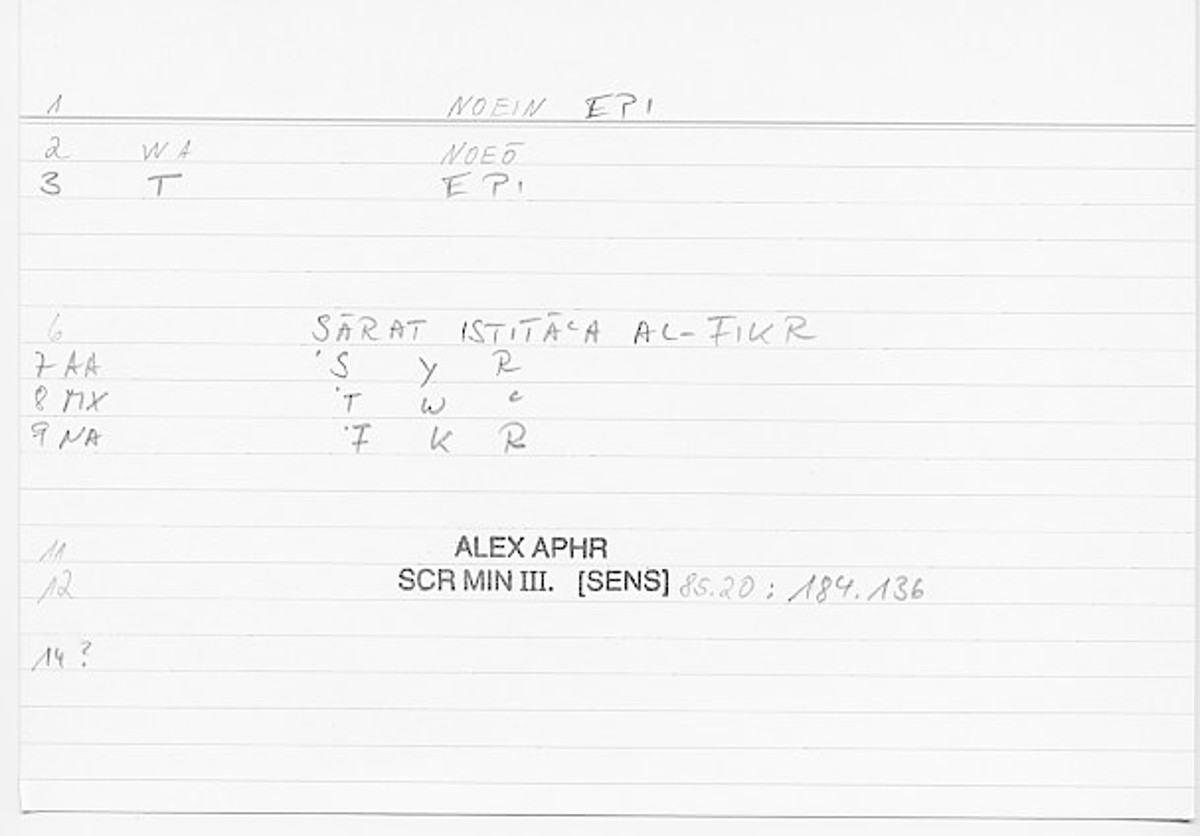 1 NOEIN EPI
2 WA NOEŌ
3 T EPI
6 SĀRAT ISTITĀcA AL-FIKR
7 AA 'S Y R
8 MX 'T W c
9 NA 'F K R
11 ALEX APHR
12 SCR MIN III. [SENS] 85.20 : 184.136
14 ?